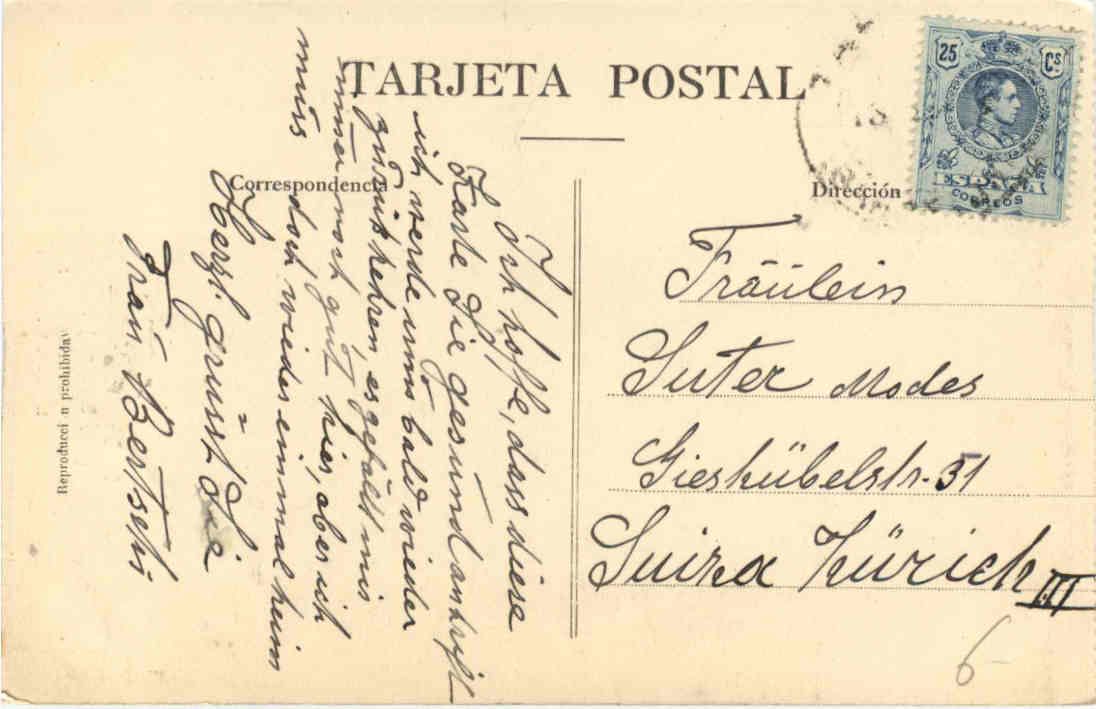 TARJETA POSTAL
Correspondencia
Dirección
25 Cs
ESPAÑA
CORREOS
Ich hoffe, dass diese
Karte Sie gesund antrifft
ich werde nun bald wieder
zurückkehren es gefällt mir
immer noch gut hier, aber ich
muss doch wieder einmal heim
Herzl. grüsst Sie
Frau Bertschi
Fräulein
Suter Modes
Gieshübelstr. 31
Suiza Zürich III
6
Reproducci n prohibida